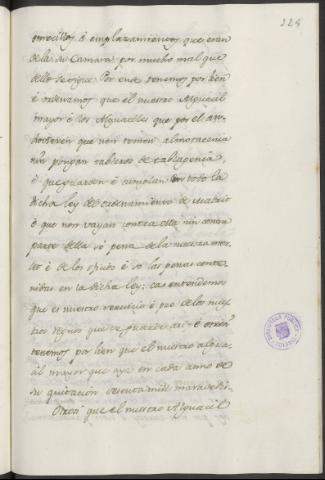 324
omecillos é emplazamientos que eran
de la su Camara por mucho mal que
dello se sigue. Por ende tenemos por bien
é ordenamos que el nuestro Alguacil
mayor é los Alguaciles que por el an-
dovieren que non tomen almotacenia
nin pongan tableros de tablagería,
é que guarden é cumplan en todo la
dicha ley del ordenamiento de Madrid
é que non vayan contra ella nin contra
parte della só pena de la nuestra mer-
ced é de los oficios é so las penas conte-
nidas en la dicha ley; cas entendemos
que es nuestro servicio é pro de los nues-
tros regnos que se guarde asi. é otrosi
tenemos por bien que el nuestro algua-
cil mayor que aya en cada año de
su quitación sesenta mill maravedis.
Otrosi que el nuestro Alguacil
BIBLIOTECA